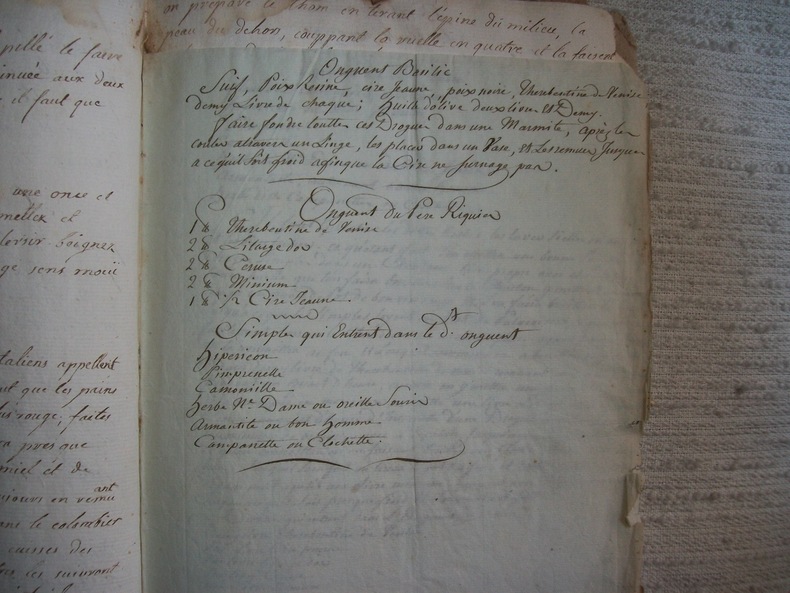 on prépare le Thon en tirant l'épine du milieu, la
peau du dehors, couppant la ruelle en quatre et la faisent
pellé le faire
inuée aux doux
il faut que
une once et
mettez et
boignez
ge sens moüi
taliens appellent
ut que les pains
us rouge, faites
pres que
miel et de
ujours en remuant
ans le colombier
cuisses des
les suivront
Onguent Basilic
Suif, Poix Resine, cire Jeaune, poix noire, Therebentine de Venise
demy Livre de chaque; Huille d'olive deux livres et Demy.
faire fondre touttes ces Drogues dans une Marmite, après les
couler atravers un Linge, les placés dans un Vase, et Les remuer Jusques
a ce qu'il soit froid affinque la Cire ne surnage pas.
Onguent du Pere Riquier
1 lb Therebentine de Venise
2 lb Litarge d'or
2 lb Ceruse
2 lb Minium
1 lb 1/2 Cire Jeaune.
Simples qui Entrent dans le dt. onguent
hipericon
Pimprenelle
Camomille
herbe Ne. Dame ou oreille Souris
Armantite ou bon homme
Campanette ou Clochette.